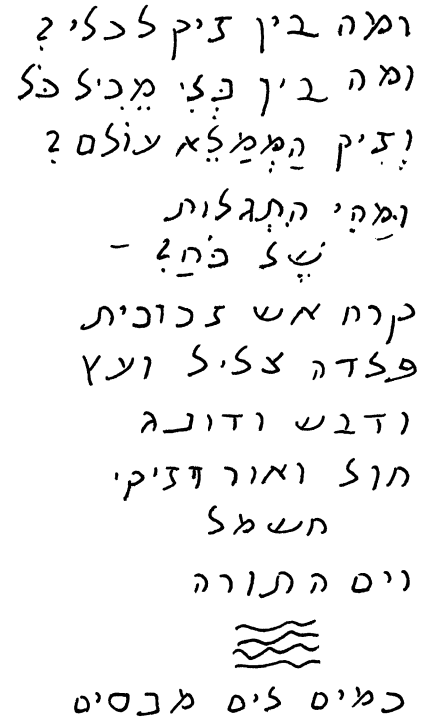 ומה בין זיק לכלי?
ומה בין כְּלִי מֵכִיל כֹּל
וְזִיק הַמְמַלֵּא עוֹלם?
וּמַהִי הִתְגלות
שֶׁל כֹּחַ? –
קרח אש זכוכית
פלדה צליל ועץ
ודבש ודונג
חול ואור וזיקי
חשמל
וים התורה
כמים לים מכסים